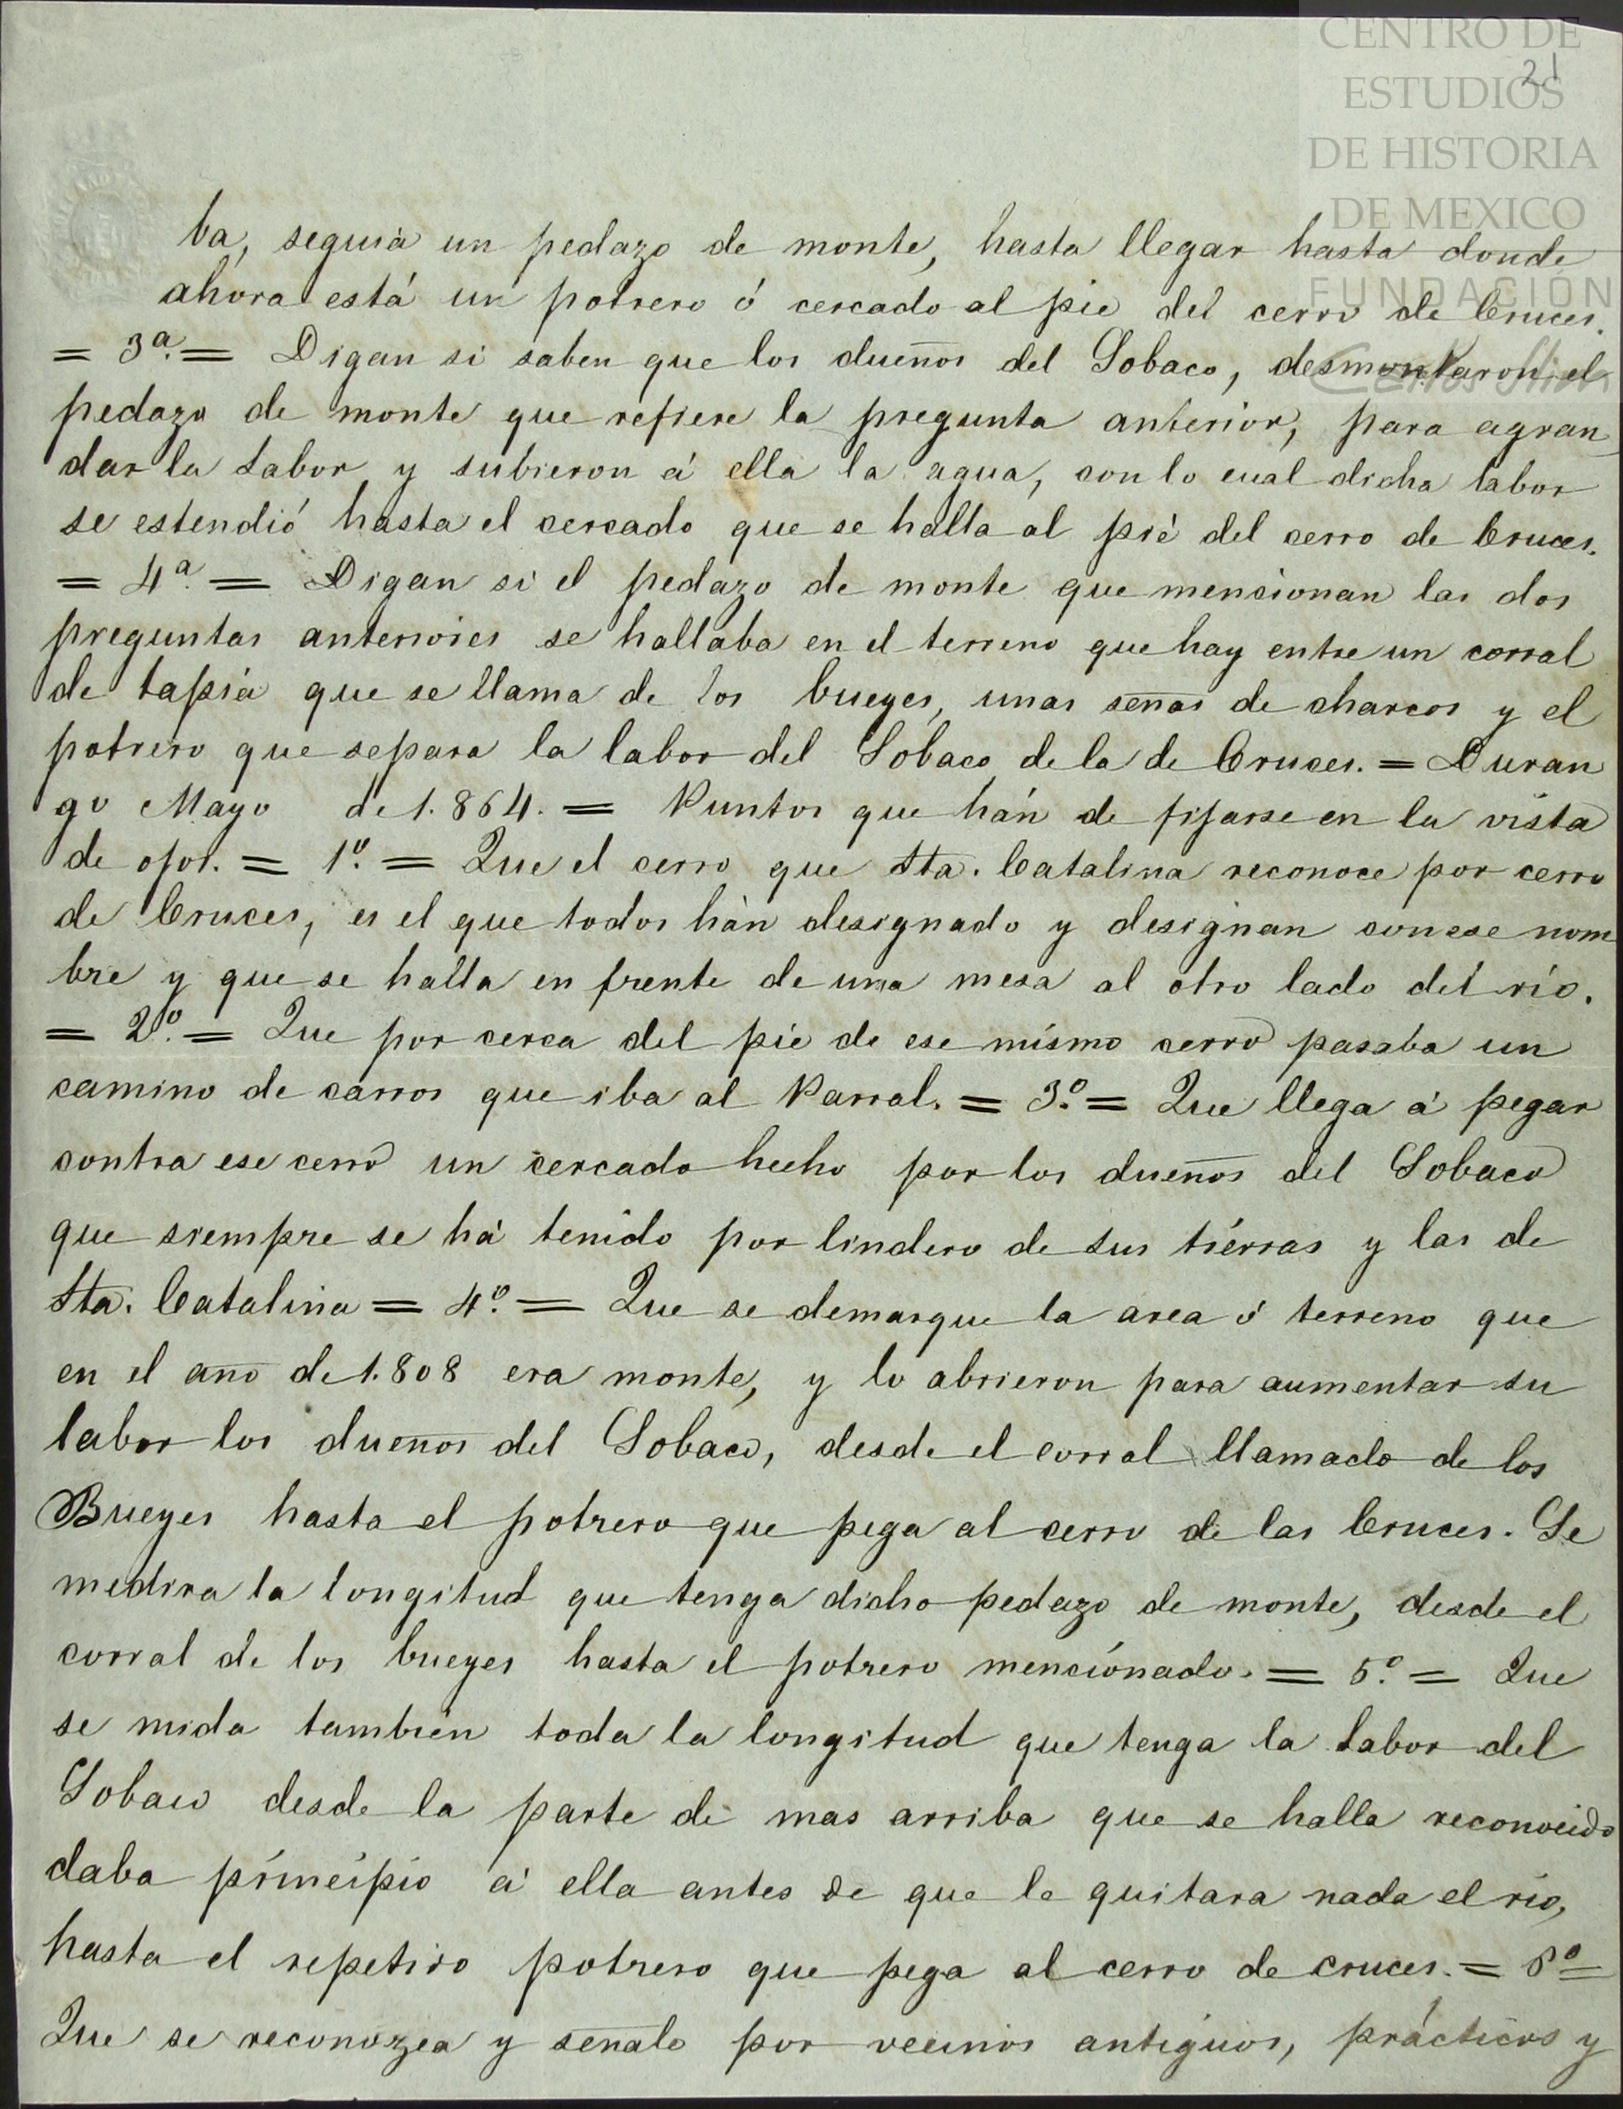 CENTRO DE
ESTUDIOS
DE HISTORIA
DE MEXICO
FUNDACIÓN
Carlos Slim
21
ba, seguia un pedazo de monte, hasta llegar hasta donde
ahora está un potrero ó cercado al pie del cerro de Cruces.
= 3ª. = Digan si saben que los dueños del Sobaco, desmontaron el
pedazo de monte que refiere la pregunta anterior, para agran
dar la labor y subieron á ella la agua, con lo cual dicha labor
se estendió hasta el cercado que se halla al pié del cerro de Cruces.
= 4ª. = Digan si el pedazo de monte que mencionan las dos
preguntas anteriores se hallaba en el terreno que hay entre un corral
de tapia que se llama de los bueyes, unas señas de charcos y el
potrero que separa la labor del Sobaco de la de Cruces. = Duran
go Mayo de 1.864. = Puntos que hán de fijarse en la vista
de ojos. = 1º. = Que el cerro que Sta. Catalina reconoce por cerro
de Cruces, es el que todos hán designado y designan con ese nom
bre y que se halla en frente de una mesa al otro lado del río.
= 2º. = Que por cerca del pie de ese mismo cerro pasaba un
camino de carros que iba al Parral. = 3º. = Que llega á pegar
contra ese cerro un cercado hecho por los dueños del Sobaco
que siempre se há tenido por lindero de sus tiérras y las de
Sta. Catalina = 4º. = Que se demarque la area ó terreno que
en el año de 1.808 era monte, y lo abrieron para aumentar su
labor los dueños del Sobaco, desde el corral llamado de los
Bueyes hasta el potrero que pega al cerro de las Cruces. Se
medira la longitud que tenga dicho pedazo de monte, desde el
corral de los bueyes hasta el potrero mencionado. = 5º. = Que
se mida tambien toda la longitud que tenga la labor del
Sobaco desde la parte de mas arriba que se halla reconocido
daba principio á ella antes de que le quitara nada el rio,
hasta el repetido potrero que pega al cerro de cruces. = 6º =
Que se reconozca y señale por vecinos antiguos, prácticos y